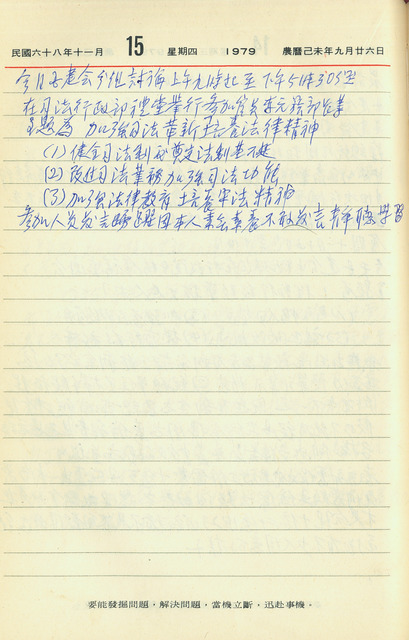 民國六十八年十一月 15 星期四 1979 農曆己未年九月廿六日
今日 會分組討論上午九時起至下午5時30分止
在司法行政部禮堂舉行參加
主題為 加強司法革新培養法律精神
(1)健全司法制度奠定法制基礎
(2)改進司法業務加強司法功能
(3)加強法律教育培養守法精神
參加人員發言踴躍因本人 不敢發言靜聽學習
要能發掘問題，解決問題，當機立斷，迅赴事機。